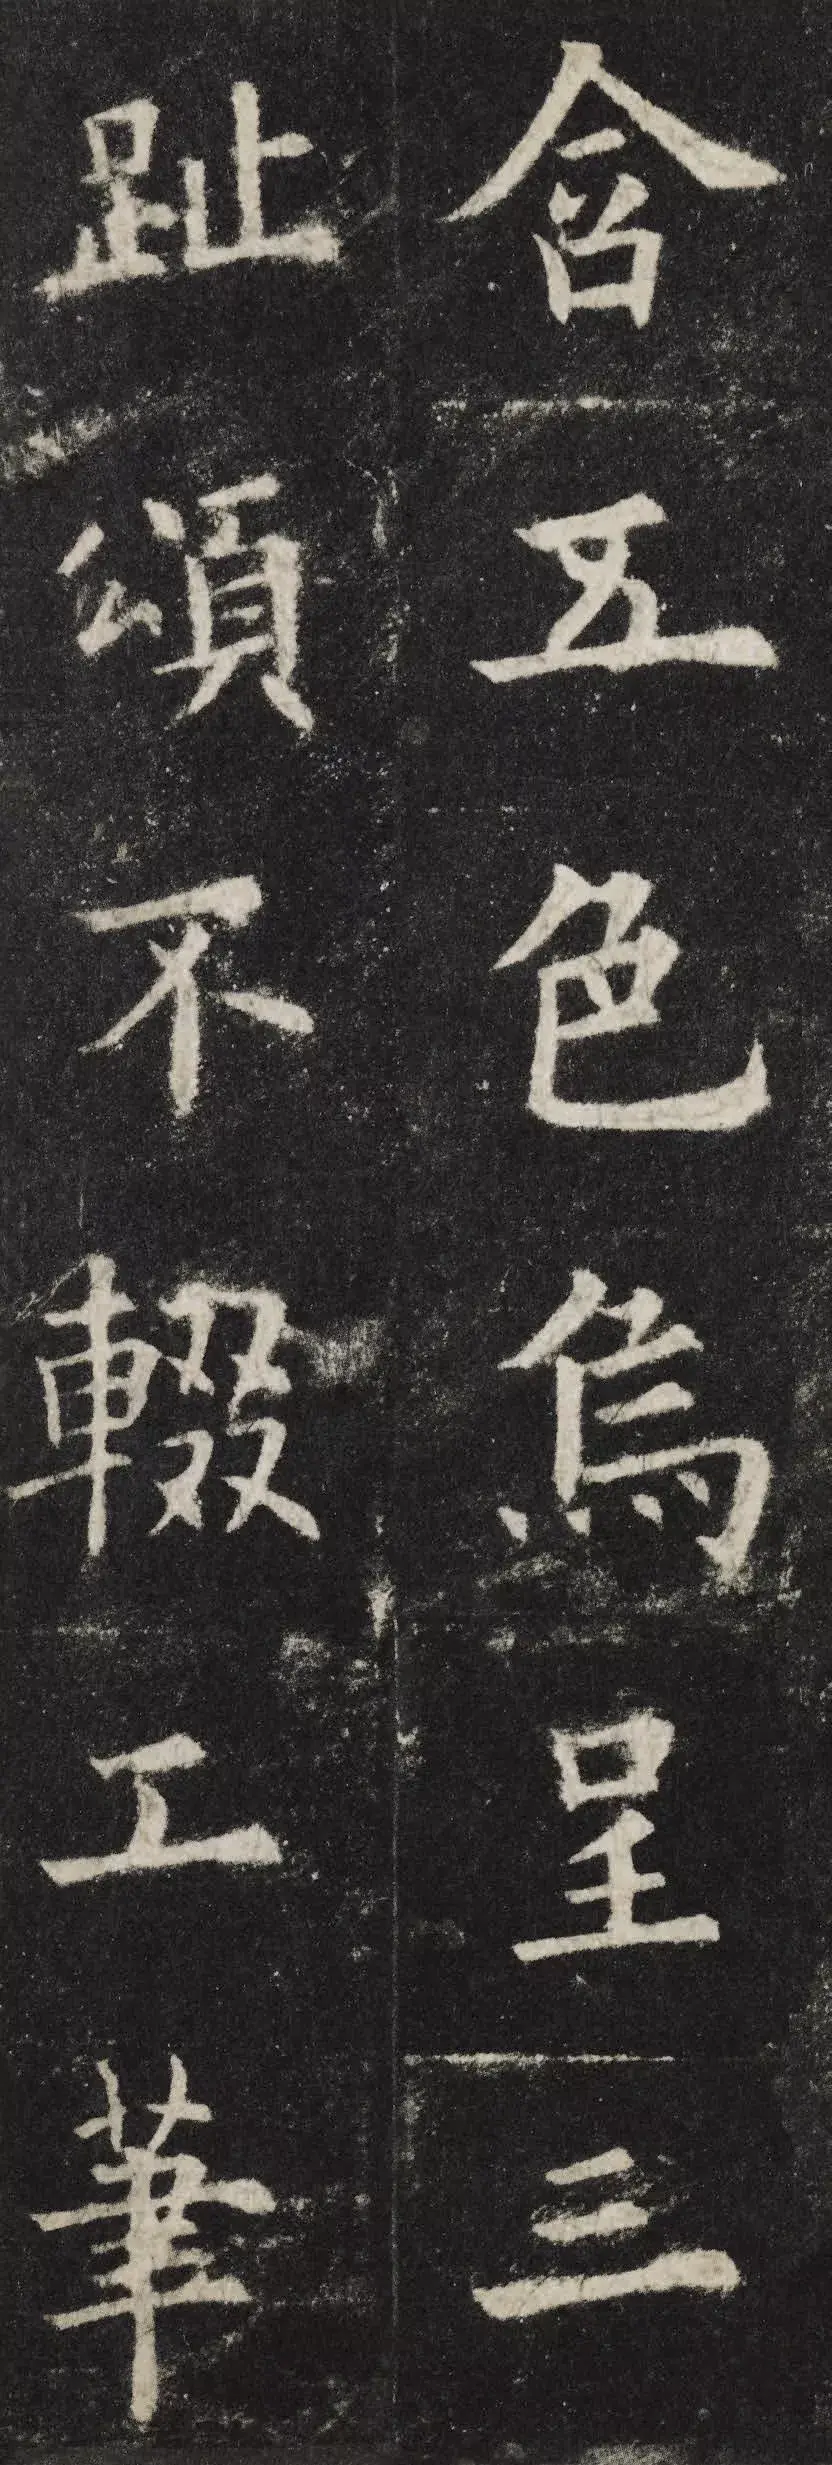 含五色烏呈三
趾頌不輟工筆